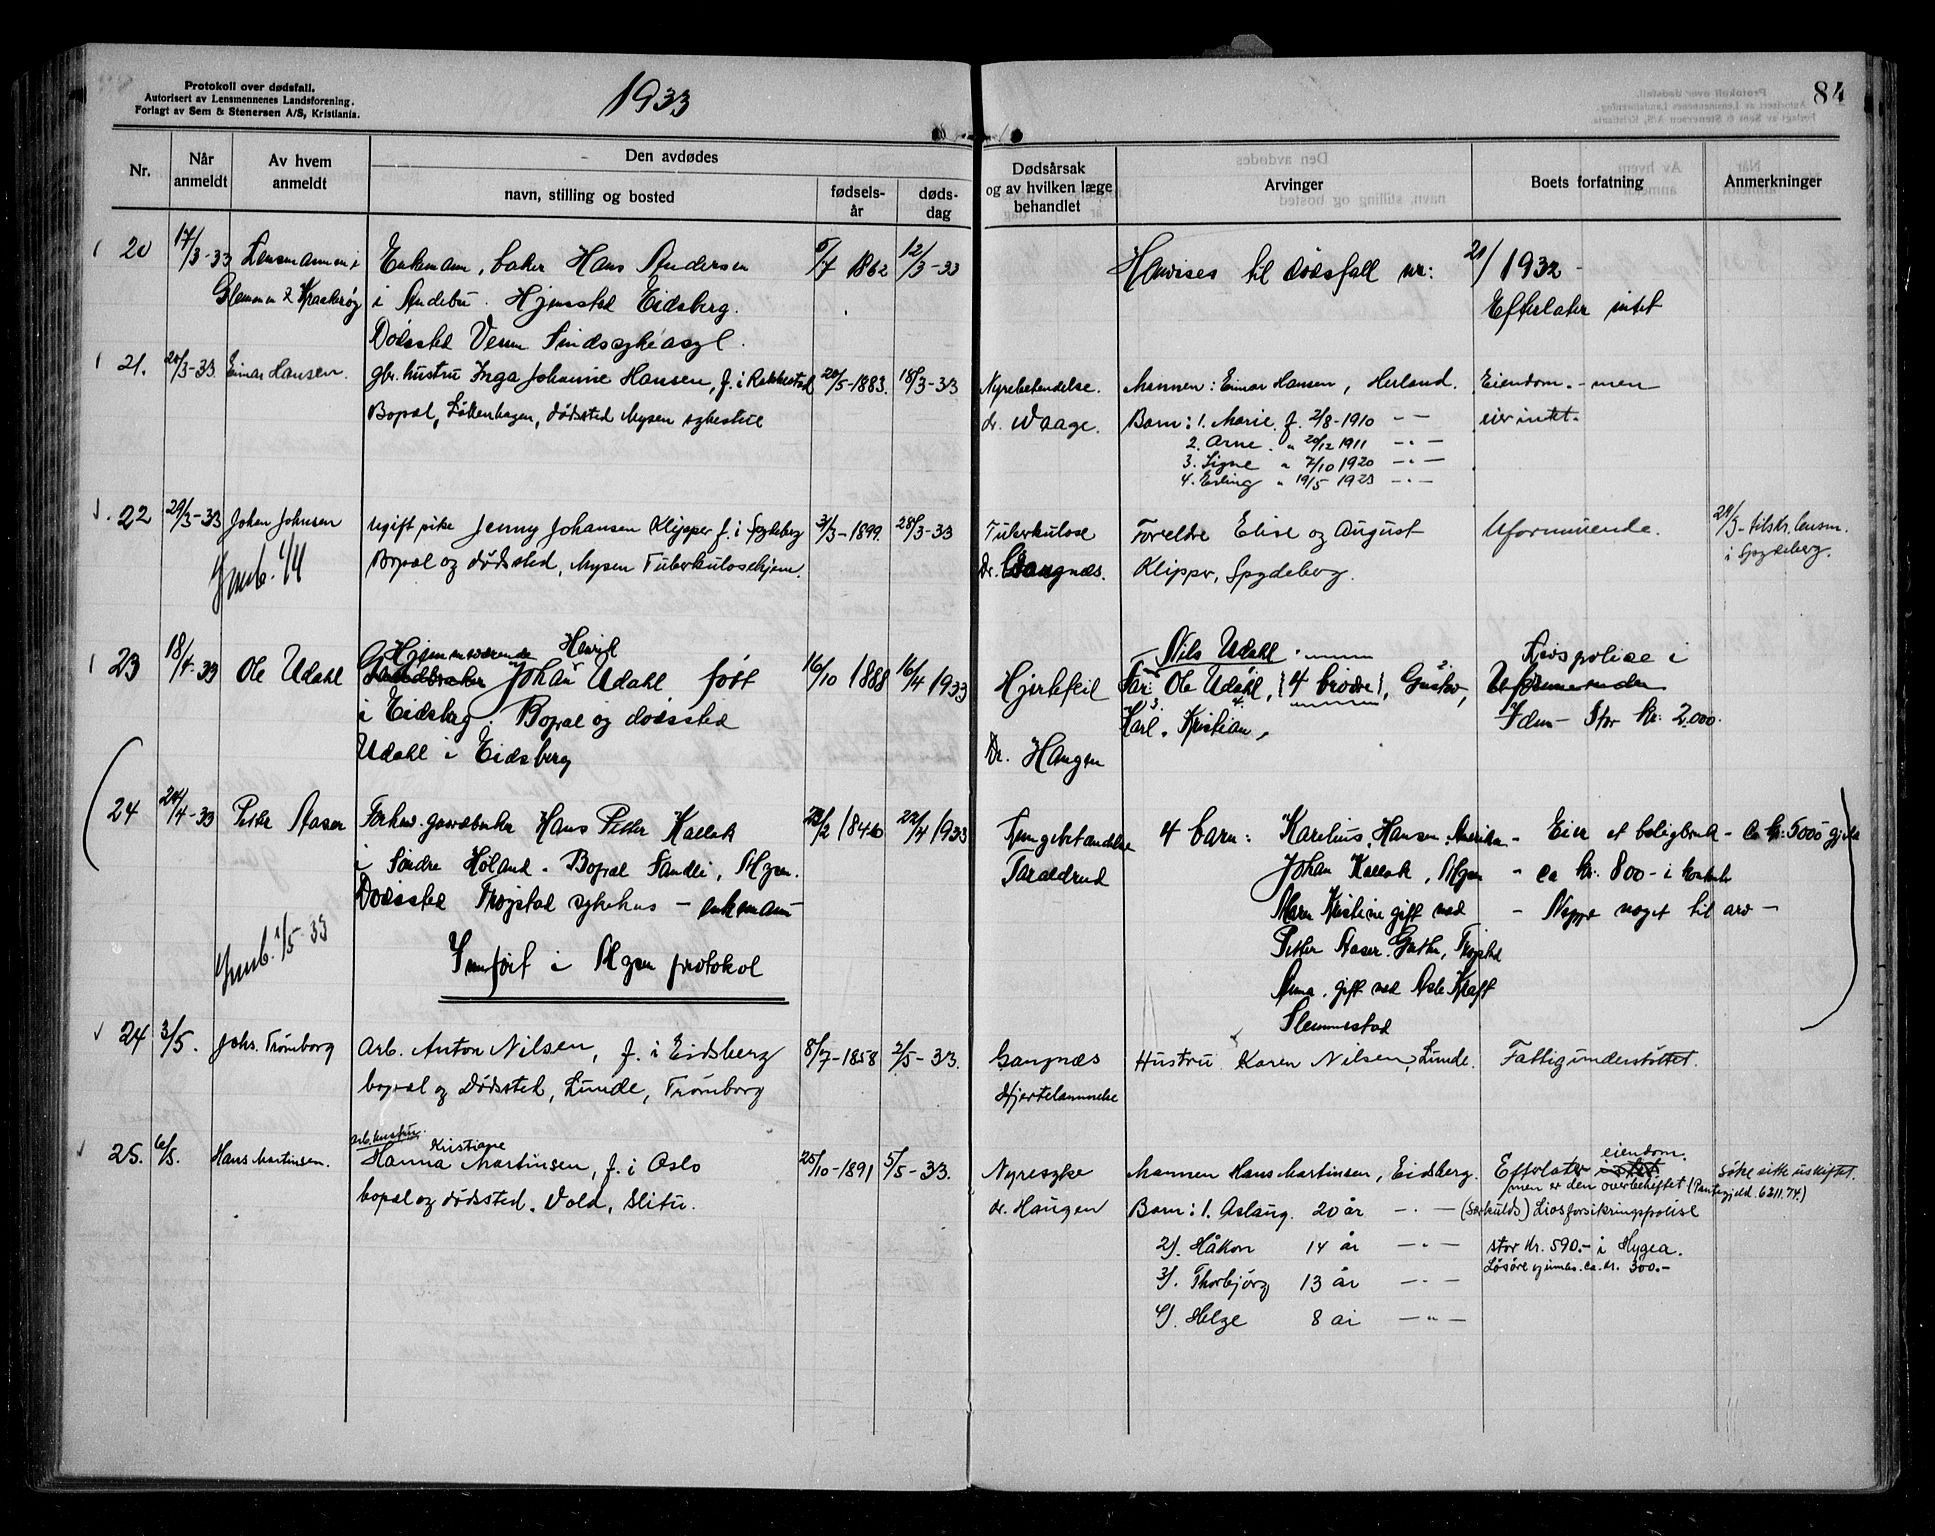 Protokoll over dødsfall.
Autorisert av Lensmennenes Landsforening.
Forlagt av Sem & Stenersen A/S, Kristiania.
1933
84
Nr.
Når anmeldt
Av hvem anmeldt
Den avdødes
navn, stilling og bosted
fødsels-år
døds-dag
Dødsårsak og av hvilken læge behandlet
Arvinger
Boets forfatning
Anmerkninger
20 17/3-33 Lensmannen i Enkemann, baker Hans Andersen 5/7 1862 12/3-33 Henvises til dødsfall nr: 21/1932 -
Glemmen & Kråkerøy i Andebu. Hjemsted Eidsberg. Efterlater intet
Dødssted Veum Sindssykeasyl.
21. 20/3-33 Einar Hansen. gbr. hustru Inga Johanne Hansen, f. i Rakkestad 20/5-1883. 18/3-33 Nyrebetendelse. Mannen: Einar Hansen, Herland. Eiendom. - men
Bopæl, Løkenhagen, dødsted Mysen sykestue dr. Waage. Barn: 1. Marie f. 2/8-1910 — — eier intet.
2. Arne. " 20/12 1911 — " —
3. Signe " 7/10 1920 — " —
4. Erling " 19/5 1923 — " —
22 29/3-33 Johan Johnsen ugift pike Jenny Johansen Klipper f. i Spydeberg 3/3-1899. 28/3-33 Tuberkulose Foreldre Elise og August Uformuende. 29/3-tilskr. lensm.
Bopæl og dødssted, Mysen Tuberkulosehjem. Dr. Gangnæs. Klipper, Spydeberg. i Spydeberg.
Innb. 1/4
Hjemmeværende Henrik Nils Udahl Livspolise i
23 18/4-33 Ole Udahl Gårdbruker Johan Udahl født 16/10 1888 16/4 1933 Hjertefeil Far: Ole Udahl, (4 brødre), Gustav, Uformuende
i Eidsberg. Bopæl og dødssted Karl, Kristian, Idun - Stor kr: 2,000.
Udahl i Eidsberg Dr. Haugen
24 24/4-33 Petter Aaser Forhv. gårdbruker Hans Petter Kallak 23/2 1846 22/4 1933 Lungebetendelse 4 barn: Karelius Hansen, Amerika - Eier et boligbruk - ca kr: 5000 gjeld
i Søndre Høland. Bopæl Sandli, Mysen. Taraldrud Johan Kallak, Mysen - ca kr. 800 - i kontanter
Dødssted Trøgstad sykehus - enkemann - Maren Kristine gift med - Neppe noget til arv -
Innb. 1/5-33 Petter Aaser. Trøgstad
Innført i Mysen protokol Anna. gift med Asle Kraft
Slemmestad
24 3/5. Johs. Trømborg Arb. Anton Nilsen, f. i Eidsberg 8/7-1858 2/5-33. Gangnæs Hustru Karen Nilsen, Lunde. Fattigunderstøttet.
bopæl og Dødssted, Lunde, Trømborg Hjertelammelse
arb. hustru. Kristiane eiendom.
25. 6/5. Hans Martinsen. Hanna Martinsen, f. i Oslo 25/10-1891 5/5-33. Nyresyke Mannen Hans Martinsen, Eidsberg. Efterlater intet. Søke sitte uskiftet.
men er den overbeheftet (Pantegjeld. 6211.74.)
bopæl og dødssted. Vold, Slitu. dr. Haugen Barn: 1. Aslaug. 20 år — " — (Særkulds) Livsforsikringspolise
2). Håkon 14 år — " — stor kr. 590.- i Hygea.
3). Thorbjørg 13 år — " — Løsøre ca. kr. 300.-
4). Helge 8 år — " —